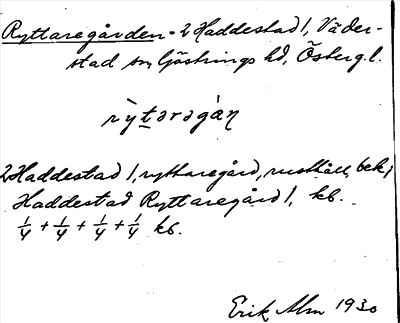 Ryttaregården - 2 Haddestad 1, Väder-
stad sn, Göstrings hd, Östergl.
rỳtaragàn
2 Haddestad 1, ryttaregård, rusthåll, bek,
Haddestad Ryttaregård 1, kb.
1/4 + 1/4 + 1/4 + 1/4 kb.
Erik Alm 1930